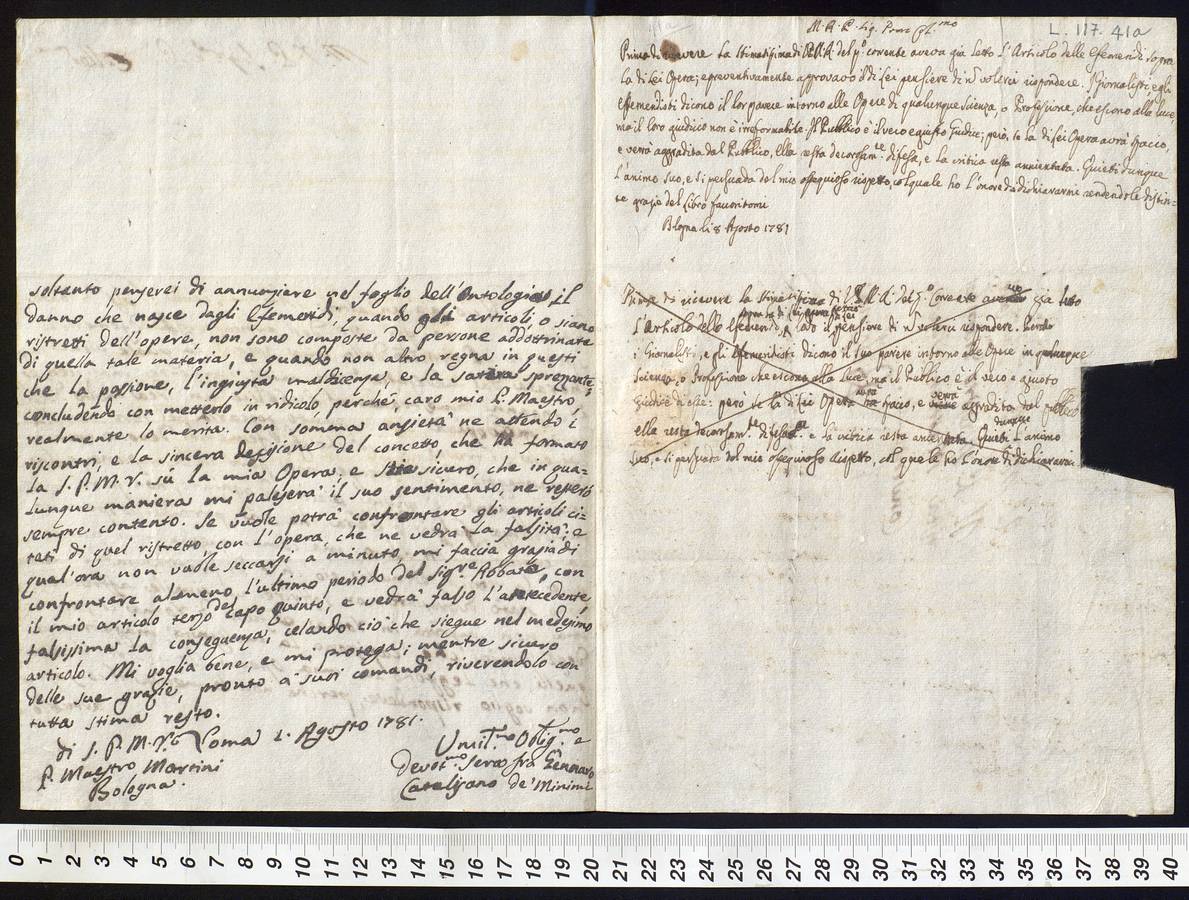 soltanto penserei di annunziare nel foglio dell'Antologia, il
danno che nasce dagli Efemeridi, quando gli articoli, o siano
ristretti dell'opere, non sono composte da persone addottrinate
di quella tale materia, e quando non altro regna in questi
che la passione, l'ingiusta maldicenza, e la satira sprezante,
concludendo con metterlo in ridicolo perchè, caro mio P. Maestro,
realmente lo merita. Con somma ansietà ne attendo i
riscontri, e la sincera decisione del concetto, che ha formato
la S. P. M. V. sù la mia Opera, e stia sicuro, che in qua=
lunque maniera mi palesera' il suo sentimento, ne resterò
sempre contento. Se vuole potrà confrontare gli articoli ci=
tati di quel ristretto, con l'opera, che ne vedrà la falsità; e
qual'ora non vuole seccarsi a minuto, mi faccia grazia di
confrontare almeno l'ultimo periodo del sig.re Abbate, con
il mio articolo terzo del capo quinto, e vedrà falso l'antecedente,
falsissima la conseguenza, celando ciò che siegue nel medesimo
articolo. Mi voglia bene, e mi protega; mentre sicuro
delle sue grazie, pronto a' suoi comandi, riverendolo con
tutta stima resto.
di S. P. M. V. Roma 1. Agosto 1781.
P. Maestro Martini
Bologna.
Umil.mo Oblig.mo e
Devot.mo Servo frà Gennaro
Catalisano de' Minimi
L. 117. 41a
M. R. P. Sig. Pron Col.mo
Prima di ricevere la stimatissima di V. P. M. R. del p.o corrente aveva già letto l'Articolo delle Efemeridi sopra
la di Lei Opera; e preventivamente approvavo il di Lei pensiere di n volervi rispondere. I Giornalisti, e gli
effemeristi dicono il lor parere intorno alle Opere di qualunque Scienza, o Professione, che escono alla luce,
ma il loro giudicio non è irreformabile. Il Pubblico è il vero e giusto Giudice; però, se la di Lei Opera avrà spaccio,
e verrà aggradita dal Pubblico, Ella resta decorosam.te difesa, e la critica resta annientata. Quieti dunque
l'animo suo, e si persuada del mio ossequioso rispetto, col quale ho l'onore di dichiararmi rendendole distin=
te grazie del Libro favoritomi
Blogna li 8 Agosto 1781
Prima di ricevere la stimatissima di V. P. M. R. del p.o Corrente avevo già letto
l'Articolo delle Efemeridi, sopra la di Lei Opera, lodo il pensiere di n volervi rispondere. Perchè
i Giornalisti, e gli Efemeristi dicono il suo parere intorno alle Opere in qualunque
Scienza, o Professione che escono alla luce, ma il Pubblico è il vero e giusto
Giudice di esse: però se la di Lei Opera avrà spaccio, e verrà aggradita dal Pubblico
ella resta decorosam.te difesa, e la critica resta annientata. Quieti dunque l'animo
suo, e si persuada del mio ossequioso rispetto, col quale ho l'onore di dichiararmi